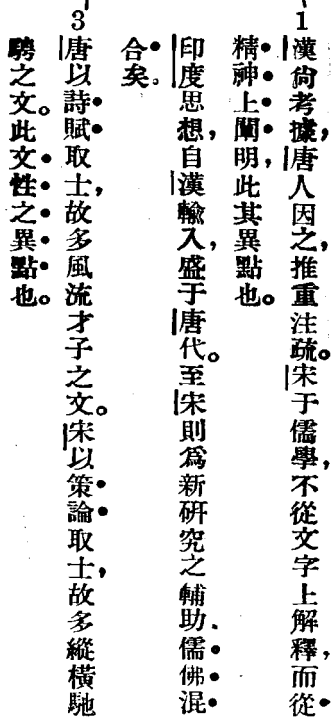 1 漢尙考據，唐人因之，推重注疏。宋于儒學，不從文字上解釋，而從
精神上闡明，此其異點也。
印度思想，自漢輸入，盛于唐代。至宋則爲新研究之輔助．儒佛混
合矣。
3 唐以詩賦取士，故多風流才子之文。宋以策論取士，故多縱橫馳
騁之文。此文性之異點也。